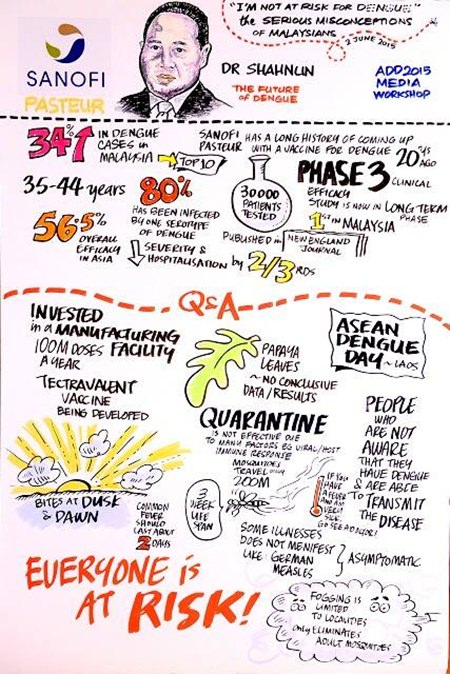 "I'M NOT AT RISK FOR DENGUE"
the SERIOUS MISCONCEPTIONS
OF MALAYSIANS
2 JUNE 2015
SANOFI
PASTEUR
DR SHAHNUN
THE FUTURE
OF DENGUE
ADD2015
MEDIA
WORKSHOP
34%
IN DENGUE
CASES in
MALAYSIA
TOP 10
SANOFI
PASTEUR
HAS A LONG HISTORY OF COMING UP
WITH A VACCINE FOR DENGUE
20 YRS
AGO
35-44 years
80%
HAS BEEN INFECTED
BY ONE SEROTYPE
OF DENGUE
30000
PATIENTS
TESTED
PHASE 3
CLINICAL
EFFICACY
STUDY IS NOW IN LONG TERM
PHASE
1ST IN MALAYSIA
56.5%
OVERALL
EFFICACY
IN ASIA
SEVERITY &
HOSPITALISATION by 2/3 RDS
PUBLISHED in
NEW ENGLAND
JOURNAL
Q&A
INVESTED
in a MANUFACTURING
100M DOSES FACILITY
A YEAR
TECTRAVALENT
VACCINE
BEING DEVELOPED
PAPAYA
LEAVES
~ NO CONCLUSIVE
DATA/RESULTS
ASEAN
DENGUE
DAY ~ LAOS
QUARANTINE
IS NOT EFFECTIVE DUE
TO MANY FACTORS EG VIRAL/HOST
IMMUNE RESPONSE
MOSQUITOES
TRAVEL only
200M
3
WEEK
LIFE
SPAN
IF YOU
HAVE
A FEVER
AND ARE
VERY
SICK,
GO SEE A DOCTOR!
PEOPLE
WHO
ARE NOT
AWARE
THAT THEY
HAVE DENGUE
& ARE ABLE
TO TRANSMIT
THE DISEASE
BITES AT DUSK
& DAWN
COMMON
FEVER
SHOULD
LAST ABOUT
2 DAYS
SOME ILLNESSES
DOES NOT MENIFEST
LIKE GERMAN
MEASLES
ASYMPTOMATIC
EVERYONE is
AT RISK!
FOGGING IS
LIMITED
TO LOCALITIES
Only ELIMINATES
ADULT MOSQUITOES